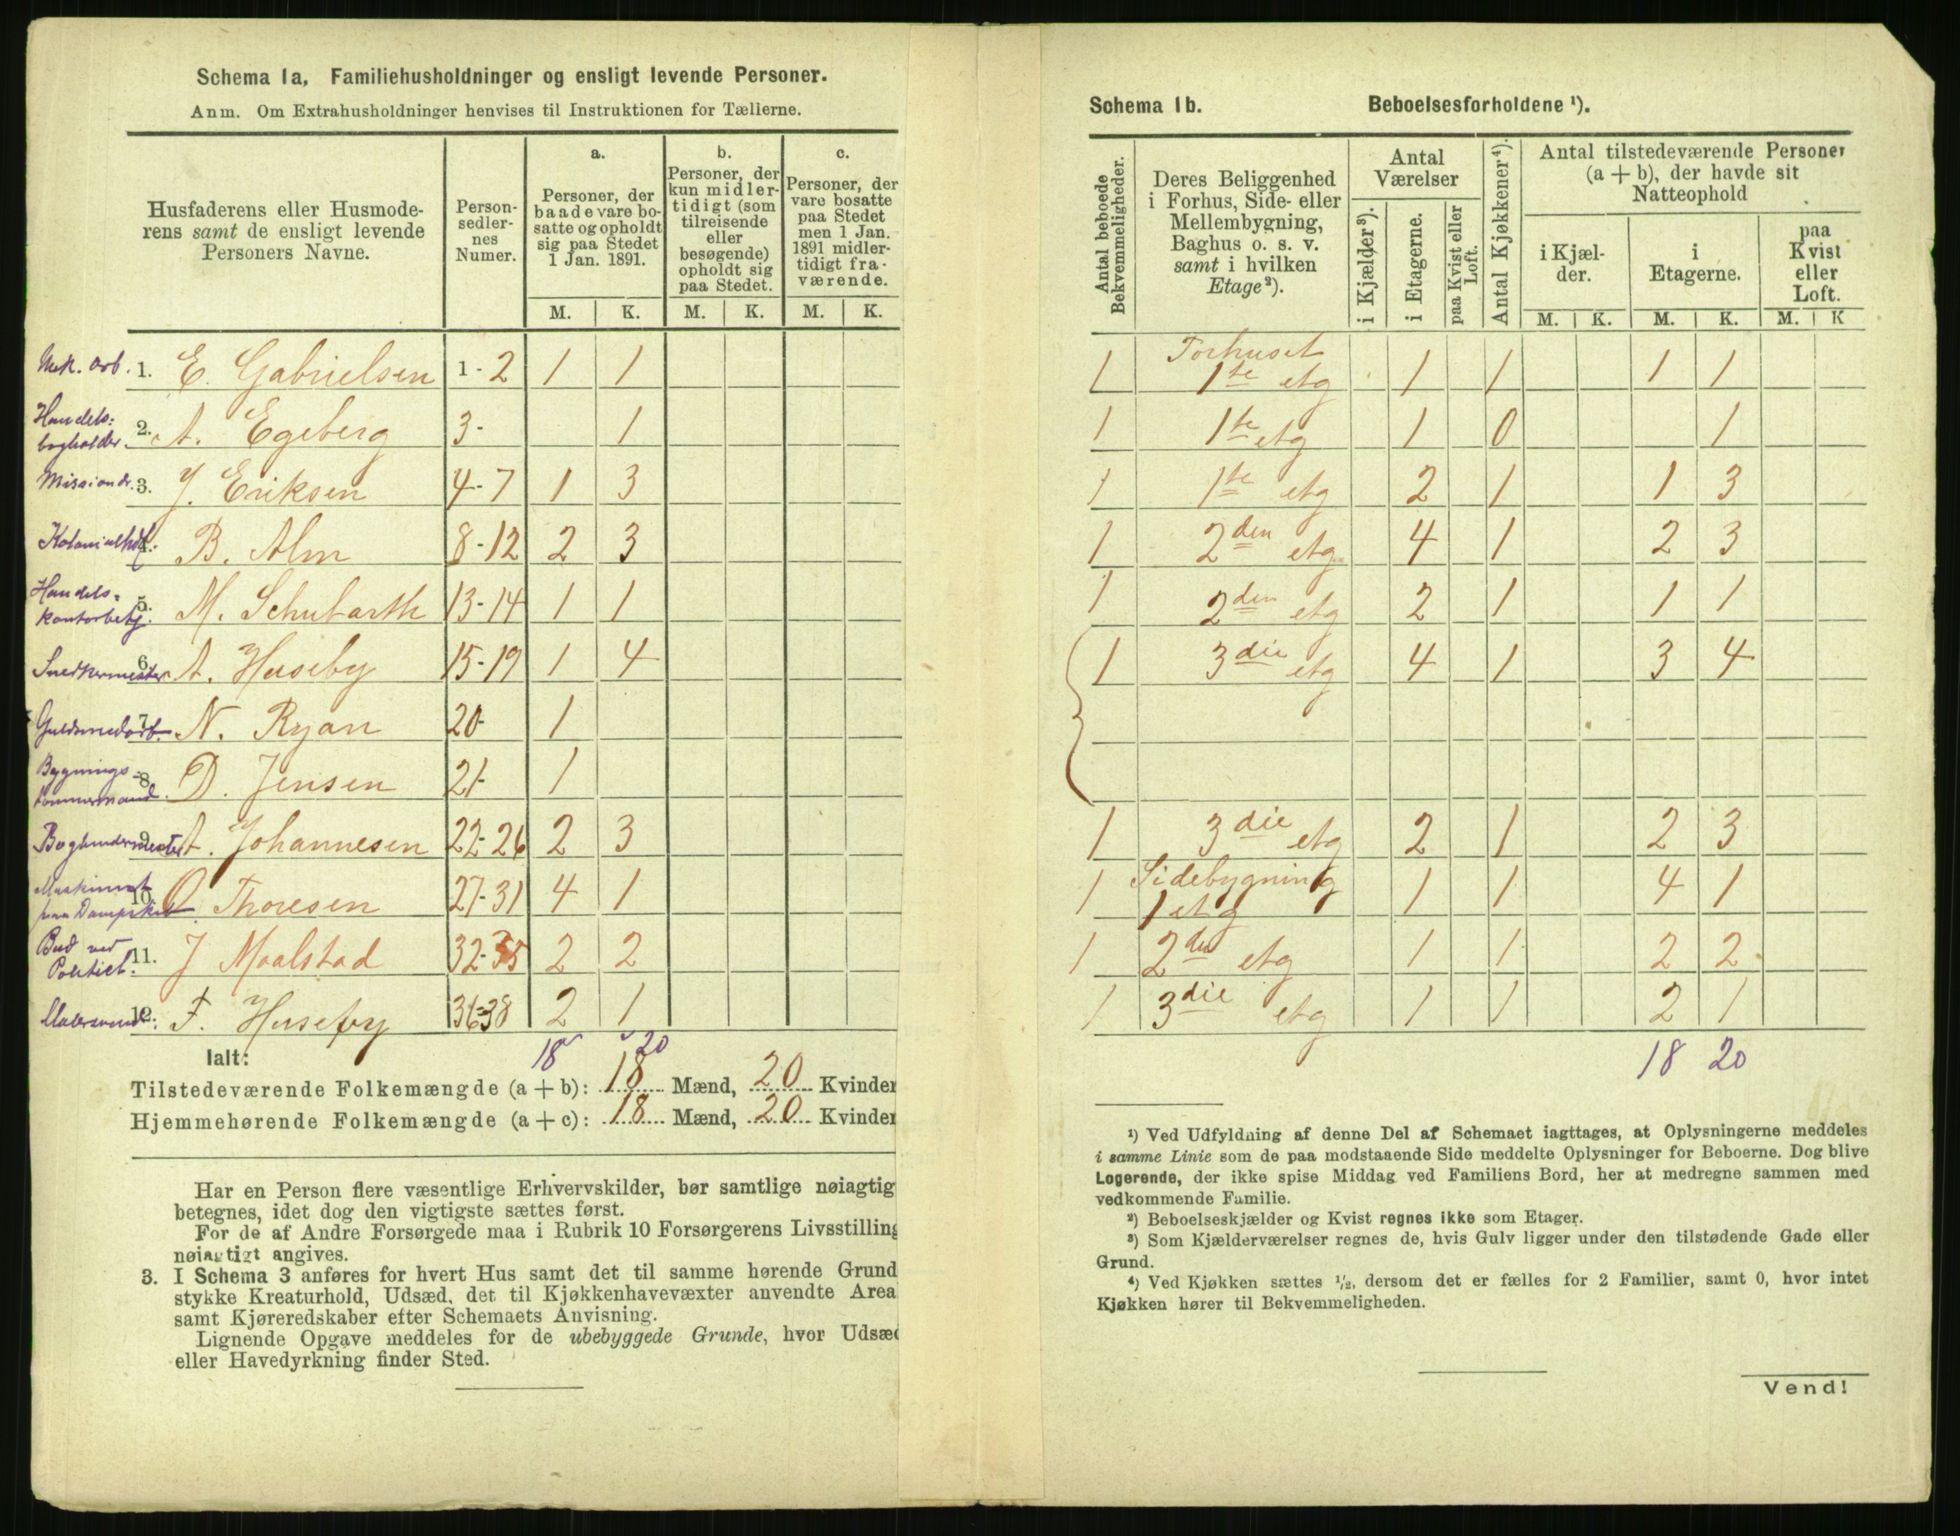 Schema 1a, Familiehusholdninger og ensligt levende Personer.
Anm. Om Extrahusholdninger henvises til Instruktionen for Tællerne.
Husfaderens eller Husmoderens samt de ensligt levende Personers Navne.
Personsedlernes Numer.
a. Personer, der baade vare bosatte og opholdt sig paa Stedet 1 Jan. 1891.
b. Personer, der kun midlertidigt (som tilreisende eller besøgende) opholdt sig paa Stedet.
c. Personer, der vare bosatte paa Stedet men 1 Jan. 1891 midlertidigt fraværende.
M. K. M. K. M. K.
Mek. arb. 1. E. Gabrielsen 1-2 1 1
Handelsbogholder. 2. A. Egeberg 3- 1
Missionær. 3. J. Eriksen 4-7 1 3
Kolonialhdl. 4. B. Alm 8-12 2 3
Handelskontorbetj. 5. M. Schubarth 13-14 1 1
Snedkermester 6. A. Huseby 15-19 1 4
Guldsmedarb. 7. N. Ryan 20- 1
Bygnings- 8. D. Jensen 21- 1
Bogbindermester 9. A. Johannesen 22-26 2 3
Maskinist paa Dampskib 10. O. Thoresen 27-31 4 1
Bud ved Politiet. 11. J Maalstad 32-35 2 2
Malersvend: 12. F. Huseby 36-38 2 1
Ialt: 18 20
Tilstedeværende Folkemængde (a + b): 18 Mænd, 20 Kvinder
Hjemmehørende Folkemængde (a + c): 18 Mænd, 20 Kvinder
Har en Person flere væsentlige Erhvervskilder, bør samtlige nøiagtig
betegnes, idet dog den vigtigste sættes først.
For de af Andre Forsørgede maa i Rubrik 10 Forsørgerens Livsstilling
nøiagtigt angives.
3. I Schema 3 anføres for hvert Hus samt det til samme hørende Grund
stykke Kreaturhold, Udsæd, det til Kjøkkenhavevæxter anvendte Area
samt Kjøreredskaber efter Schemaets Anvisning.
Lignende Opgave meddeles for de ubebyggede Grunde, hvor Udsæd
eller Havedyrkning finder Sted.
Schema 1b. Beboelsesforholdene ¹).
Antal beboede Bekvemmeligheder.
Deres Beliggenhed i Forhus, Side- eller Mellembygning, Baghus o. s. v. samt i hvilken Etage²).
Antal Værelser
i Kjælder³).
i Etagerne.
paa Kvist eller Loft.
Antal Kjøkkener⁴).
Antal tilstedeværende Personer (a + b), der havde sit Natteophold
i Kjælder.
i Etagerne.
paa Kvist eller Loft.
M. K. M. K. M. K
1 Forhuset 1te etg 1 1 1 1
1 1te etg 1 0 1
1 1te etg 2 1 1 3
1 2den etg 4 1 2 3
1 2den etg 2 1 1 1
1 3die etg 4 1 3 4
1 3die etg 2 1 2 3
1 Sidebygning 1 etg 1 1 4 1
1 2den etg 1 1 2 2
1 3die etg 1 1 2 1
18 20
¹) Ved Udfyldning af denne Del af Schemaet iagttages, at Oplysningerne meddeles
i samme Linie som de paa modstaaende Side meddelte Oplysninger for Beboerne. Dog blive
Logerende, der ikke spise Middag ved Familiens Bord, her at medregne sammen med
vedkommende Familie.
²) Beboelseskjælder og Kvist regnes ikke som Etager.
³) Som Kjælderværelser regnes de, hvis Gulv ligger under den tilstødende Gade eller
Grund.
⁴) Ved Kjøkken sættes ½, dersom det er fælles for 2 Familier, samt 0, hvor intet
Kjøkken hører til Bekvemmeligheden.
Vend!